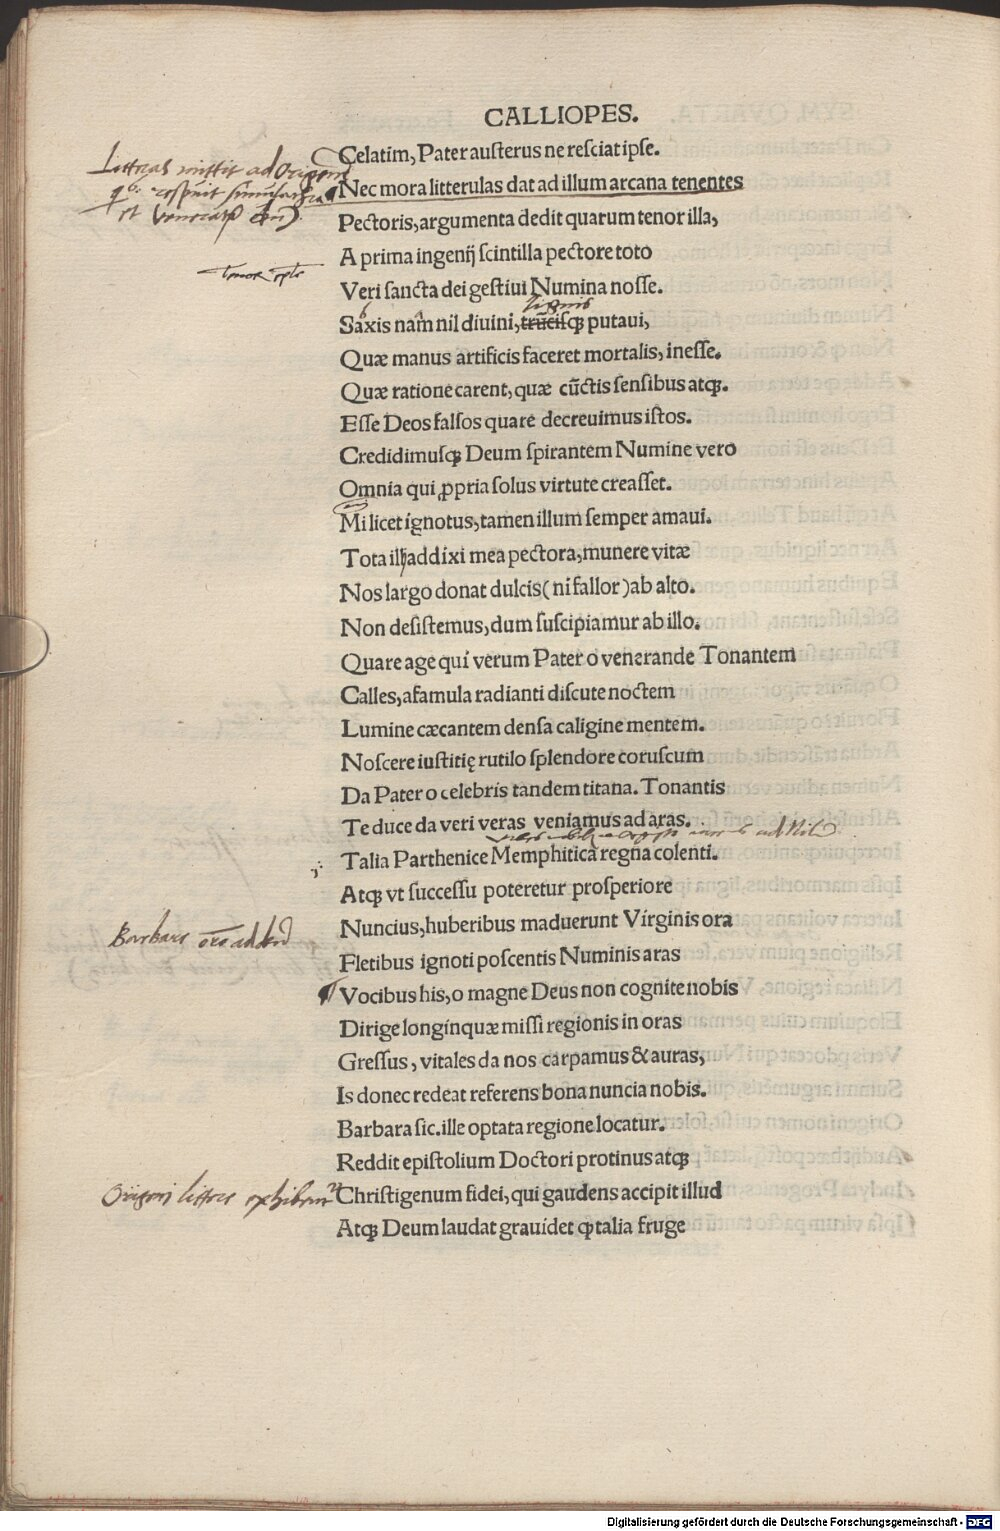 CALLIOPES.
Celatim, Pater austerus ne resciat ipse.
Litteras mittit ad Origenem
Nec mora litterulas dat ad illum arcana tenentes
Pectoris, argumenta dedit quarum tenor illa,
A prima ingenij scintilla pectore toto
tenor
Veri sancta dei gestiui Numina nosse.
lignis
Saxis nam nil diuini, truncisqꝫ putaui,
Quæ manus artificis faceret mortalis, inesse.
Quæ ratione carent, quæ cūctis sensibus atqꝫ.
Esse Deos falsos quare decreuimus istos.
Credidimusqꝫ Deum spirantem Numine vero
Omnia qui ꝓpria solus virtute creasset.
Mi licet ignotus, tamen illum semper amaui.
Tota illi addixi mea pectora, munere vitæ
Nos largo donat dulcis( ni fallor )ab alto.
Non desistemus, dum suscipiamur ab illo.
Quare age qui verum Pater o venerande Tonantem
Calles, afamula radianti discute noctem
Lumine cæcantem densa caligine mentem.
Noscere iustitię rutilo splendore coruscum
Da Pater o celebris tandem titana. Tonantis
Te duce da veri veras veniamus ad aras.
Talia Parthenice Memphitica regna colenti.
Atqꝫ vt successu poteretur prosperiore
Nuncius, huberibus maduerunt Virginis ora
Barbare
Fletibus ignoti poscentis Numinis aras
Vocibus his, o magne Deus non cognite nobis
Dirige longinquæ missi regionis in oras
Gressus, vitales da nos carpamus & auras,
Is donec redeat referens bona nuncia nobis.
Barbara sic. ille optata regione locatur.
Reddit epistolium Doctori protinus atqꝫ
Origeni littere exhibentur
Christigenum fidei, qui gaudens accipit illud
Atqꝫ Deum laudat grauidet ꝙ talia fruge
Digitalisierung gefördert durch die Deutsche Forschungsgemeinschaft - DFG